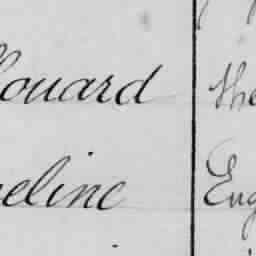 ouard the
eline Eug